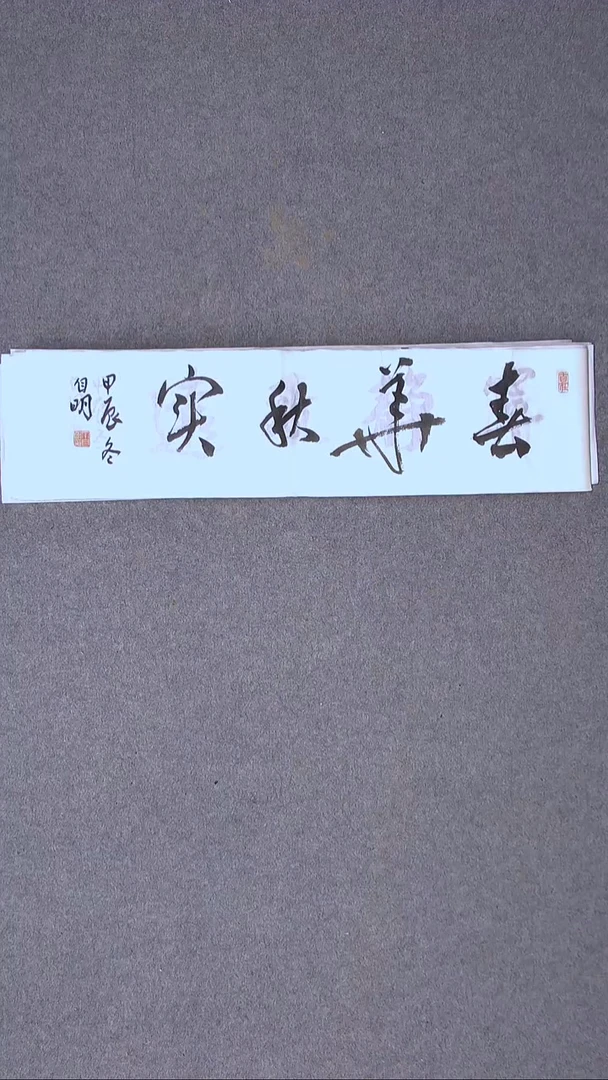 春華秋实
甲辰冬
自明